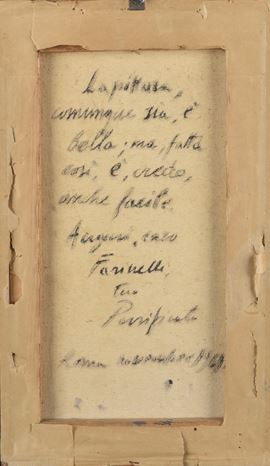 La pittura,
comunque sia, è
bella; ma, fatta
così, è, credo,
anche facile.
Auguri, caro
Farinelli,
tuo
Purificato
Roma novembre